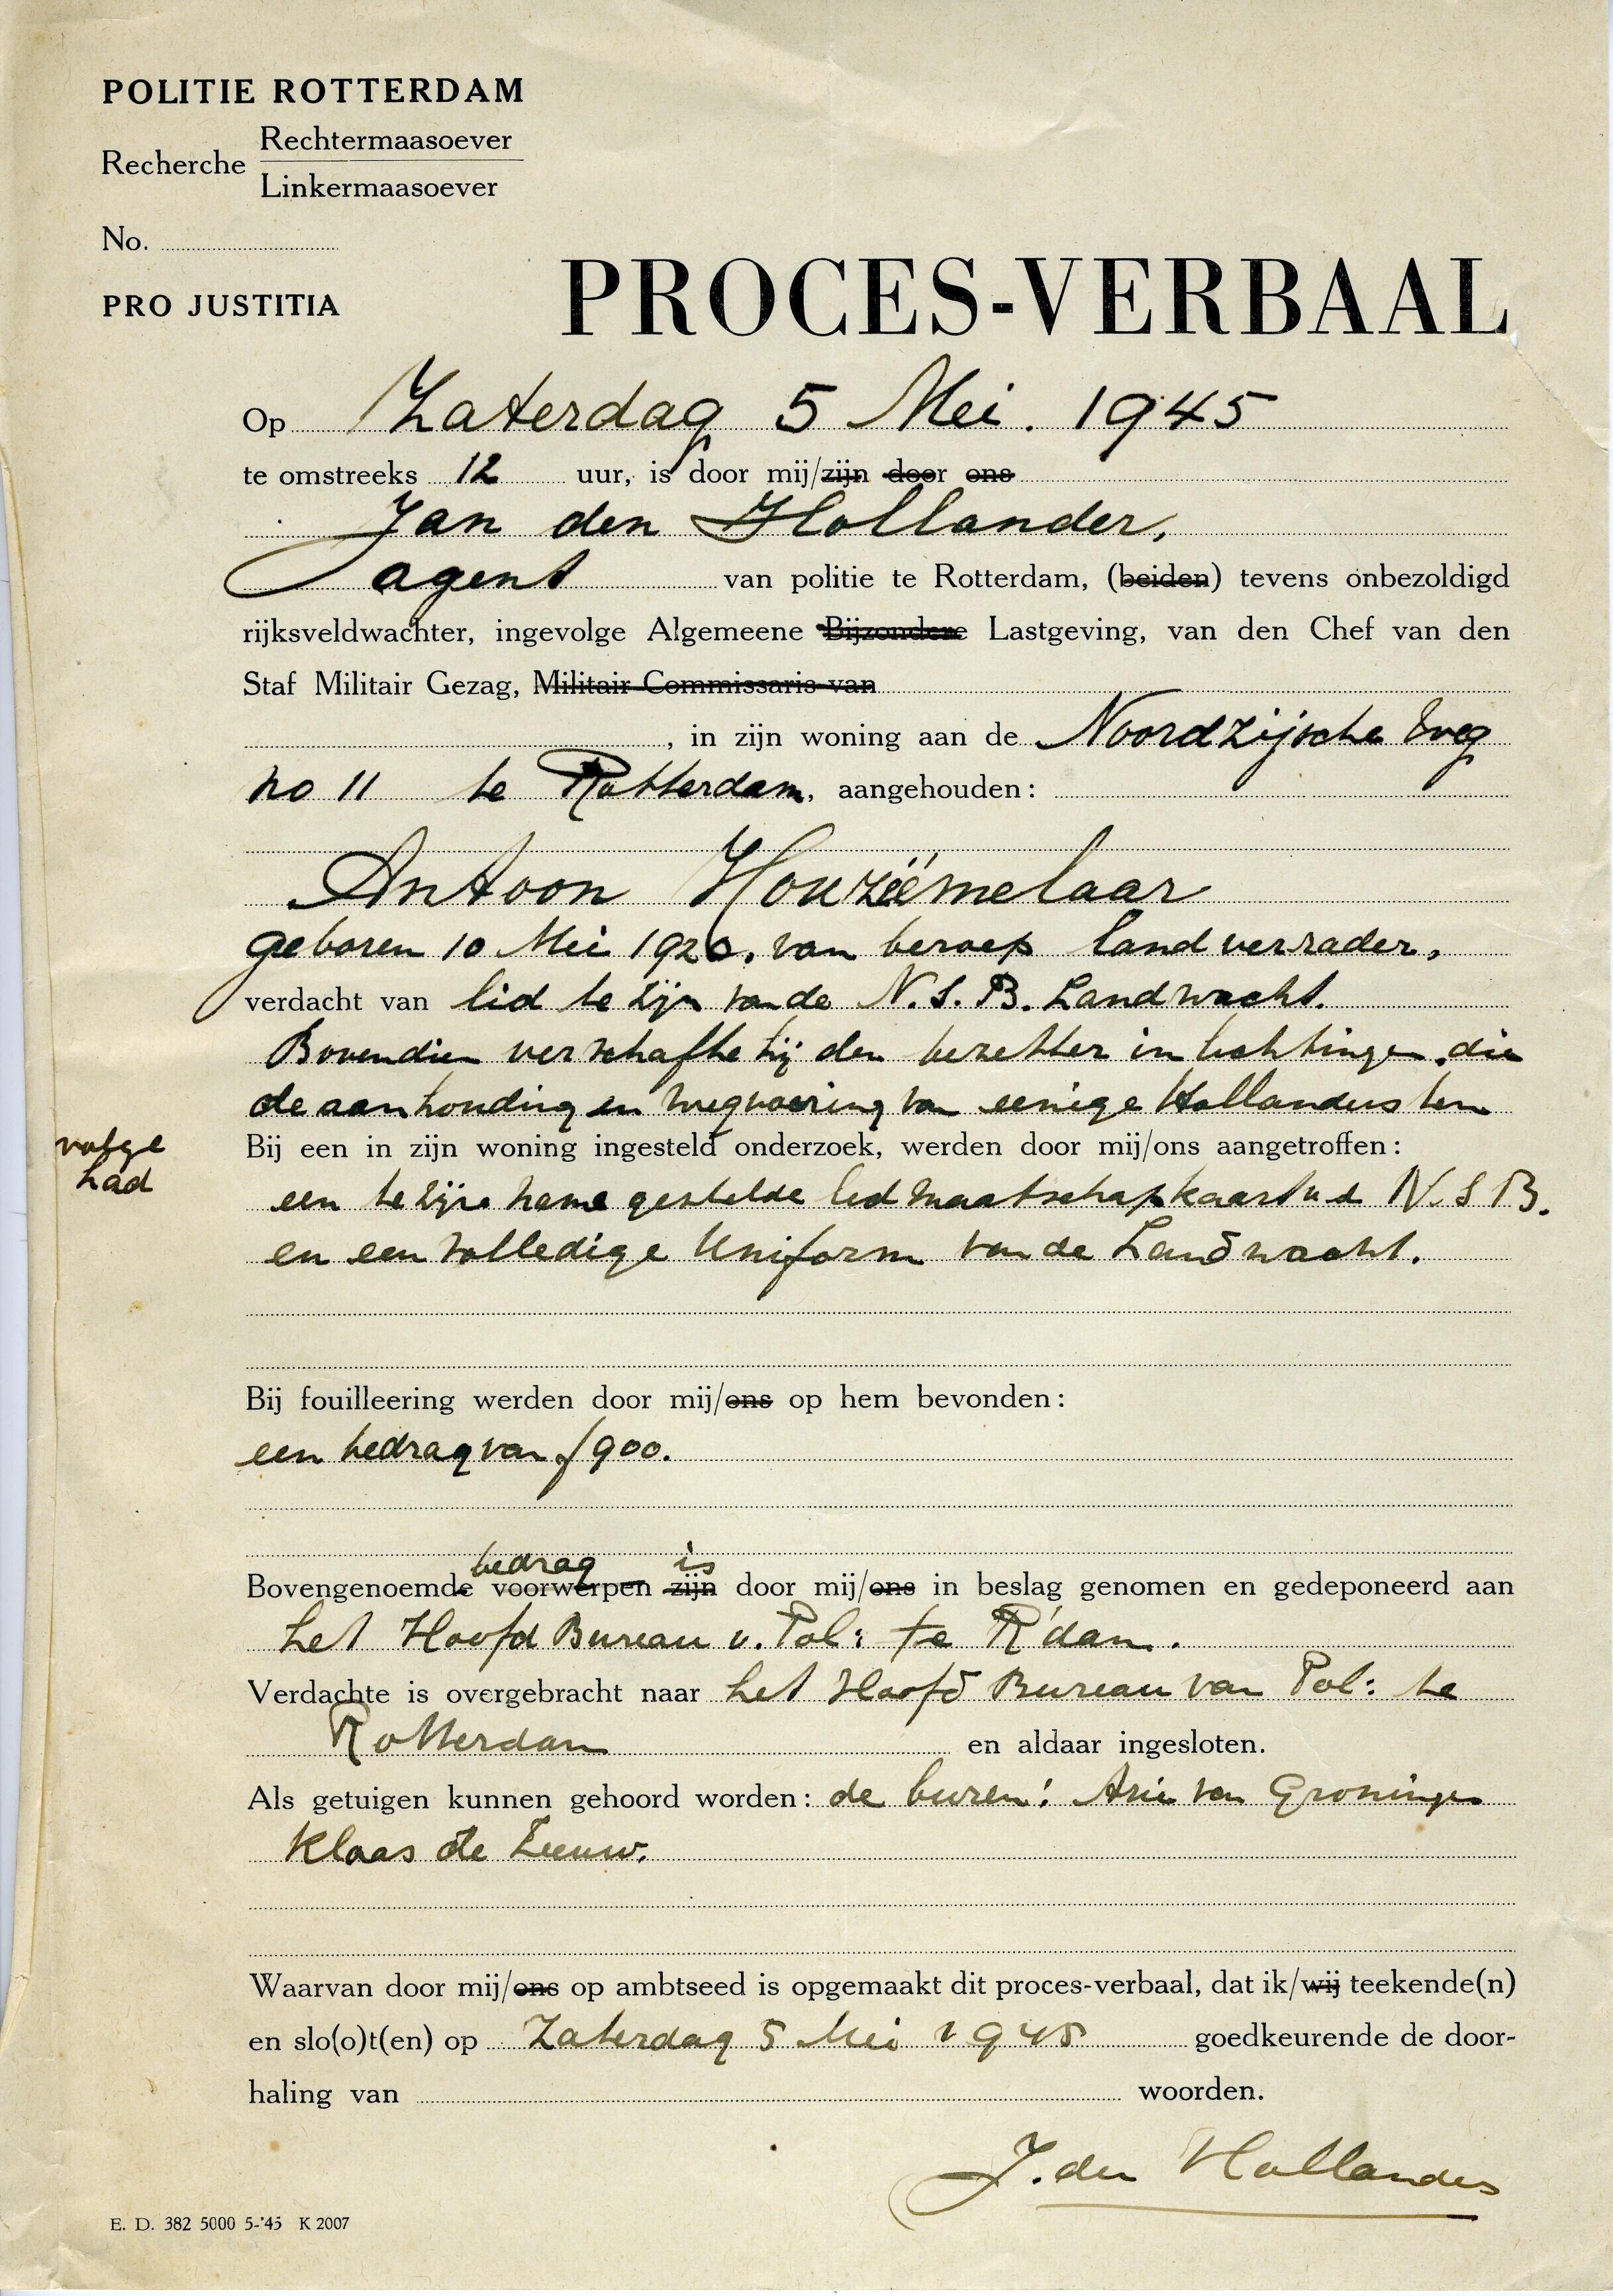 POLITIE ROTTERDAM
Recherche Rechtermaasoever
Linkermaasoever
No.
PRO JUSTITIA
PROCES-VERBAAL
Op Zaterdag 5 Mei. 1945
te omstreeks 12 uur, is door mij/zijn door ons
Jan den Hollander,
agent van politie te Rotterdam, (beiden) tevens onbezoldigd
rijksveldwachter, ingevolge Algemeene Bijzondere Lastgeving, van den Chef van den
Staf Militair Gezag, Militair Commissaris van
, in zijn woning aan de Noordzijsche weg
no 11 te Rotterdam, aangehouden:
Antoon Houzéémelaar
geboren 10 Mei 1920, van beroep landverrader,
verdacht van lid te zijn van de N.S.B. Landwacht.
Bovendien verschafte hij den bezetter inlichtingen, die
de aanhouding en wegvoering van eenige Hollanders ten
volge
had
Bij een in zijn woning ingesteld onderzoek, werden door mij/ons aangetroffen:
een te zijne name gestelde lidmaatschapkaart v.d N.S.B.
en een volledige Uniform van de Landwacht.
Bij fouilleering werden door mij/ons op hem bevonden:
een bedrag van f 900.
bedrag is
Bovengenoemde voorwerpen zijn door mij/ons in beslag genomen en gedeponeerd aan
het Hoofd Bureau v. Pol: te R'dam.
Verdachte is overgebracht naar het Hoofd Bureau van Pol: te
Rotterdam en aldaar ingesloten.
Als getuigen kunnen gehoord worden: de buren: Arie van Groningen
Klaas de Leeuw.
Waarvan door mij/ons op ambtseed is opgemaakt dit proces-verbaal, dat ik/wij teekende(n)
en slo(o)t(en) op Zaterdag 5 Mei 1945 goedkeurende de door-
haling van woorden.
J. den Hollander
E. D. 382 5000 5-'45 K 2007